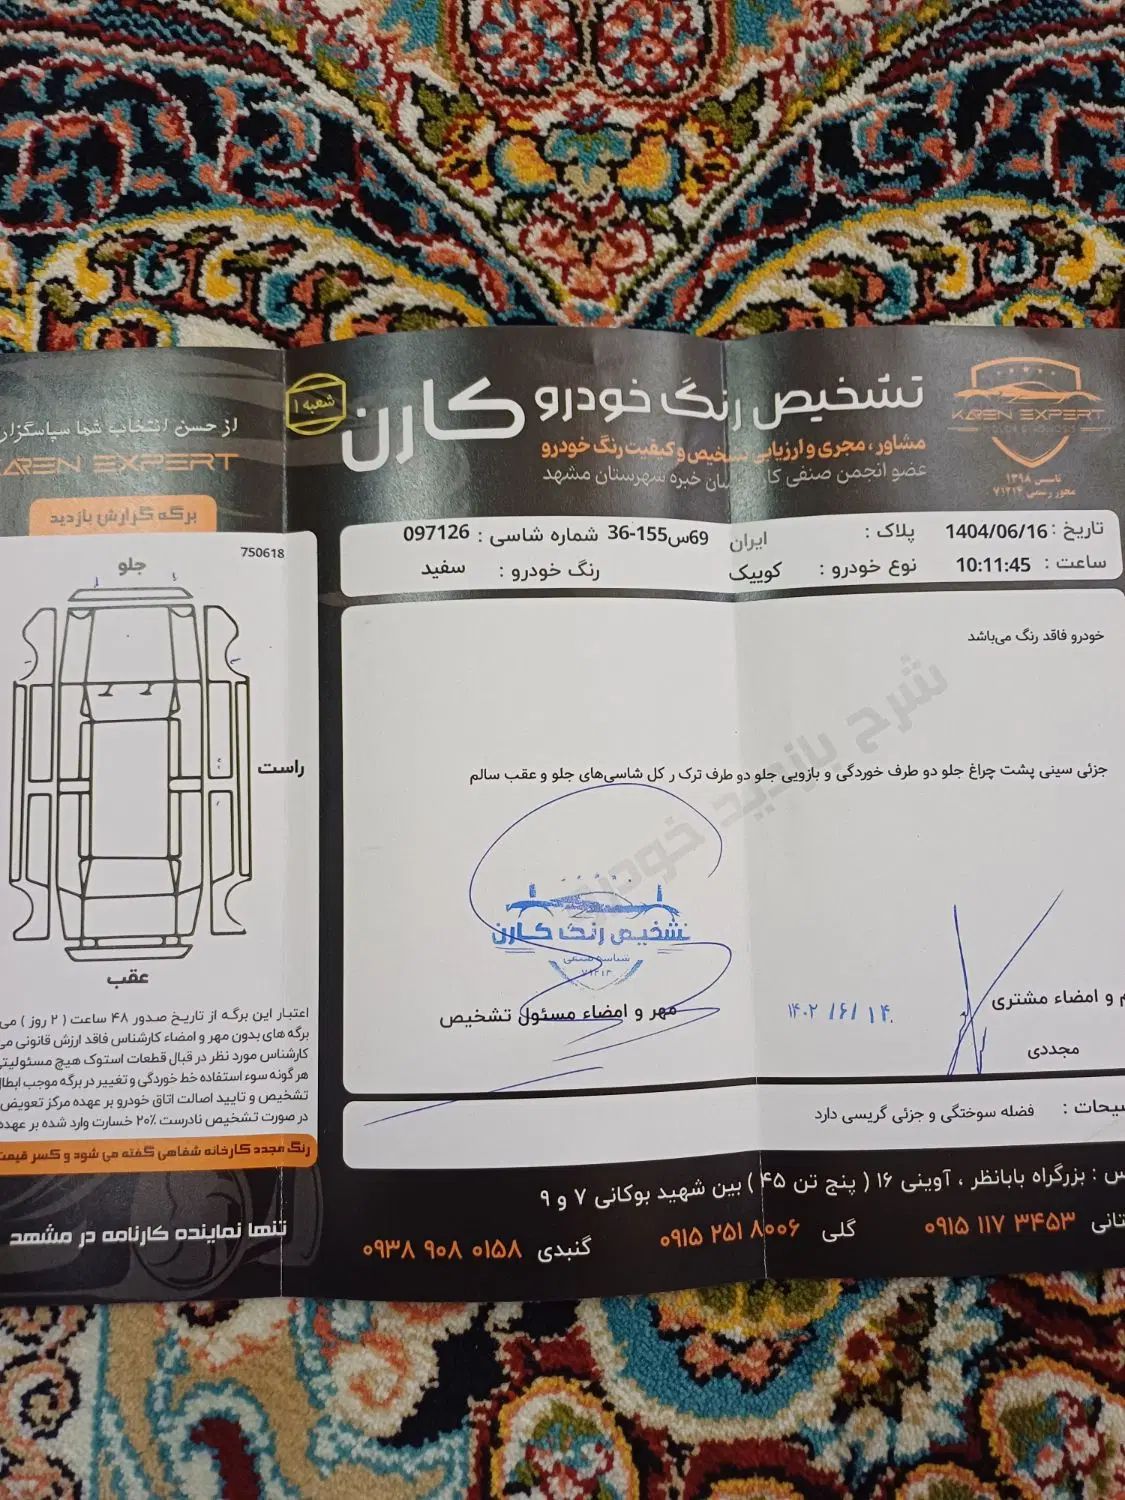 تشخیص رنگ خودرو کارن
شعبه ۱
مشاور، مجری و ارزیابی تشخیص و کیفیت رنگ خودرو
عضو انجمن صنفی کارشناسان خبره شهرستان مشهد
KAREN EXPERT
COLOR DIAGNOSIS
تاسیس ۱۳۹۸
مجوز رسمی ۷۱۲۱۴
از حسن انتخاب شما سپاسگزار
KAREN EXPERT
برگه گزارش بازدید
تاریخ : 1404/06/16
پلاک : ایران 36-155س69
شماره شاسی : 097126
ساعت : 10:11:45
نوع خودرو : کوییک
رنگ خودرو : سفید
750618
جلو
راست
عقب
خودرو فاقد رنگ می‌باشد
شرح بازدید خودرو
جزئی سینی پشت چراغ جلو دو طرف خوردگی و بازویی جلو دو طرف ترک ر کل شاسی‌های جلو و عقب سالم
تشخیص رنگ کارن
شناسه صنفی
۷۱۲۱۴
مهر و امضاء مسئول تشخیص
۱۴۰۲ /۶/ ۱۴
م و امضاء مشتری
مجددی
یحات : فضله سوختگی و جزئی گریسی دارد
اعتبار این برگه از تاریخ صدور ۴۸ ساعت ( ۲ روز ) می
برگه های بدون مهر و امضاء کارشناس فاقد ارزش قانونی می
کارشناس مورد نظر در قبال قطعات استوک هیچ مسئولیتی
هر گونه سوء استفاده خط خوردگی و تغییر در برگه موجب ابطال
تشخیص و تایید اصالت اتاق خودرو بر عهده مرکز تعویض
در صورت تشخیص نادرست ۲۰٪ خسارت وارد شده بر عهده
رنگ مجدد کارخانه شفاهی گفته می شود و کسر قیمت
تنها نماینده کارنامه در مشهد
س : بزرگراه بابانظر ، آوینی ۱۶ ( پنج تن ۴۵ ) بین شهید بوکانی ۷ و ۹
تانی ۰۹۱۵ ۱۱۷ ۳۴۵۳
گلی ۰۹۱۵ ۲۵۱ ۸۰۰۶
گنبدی ۰۹۳۸ ۹۰۸ ۰۱۵۸